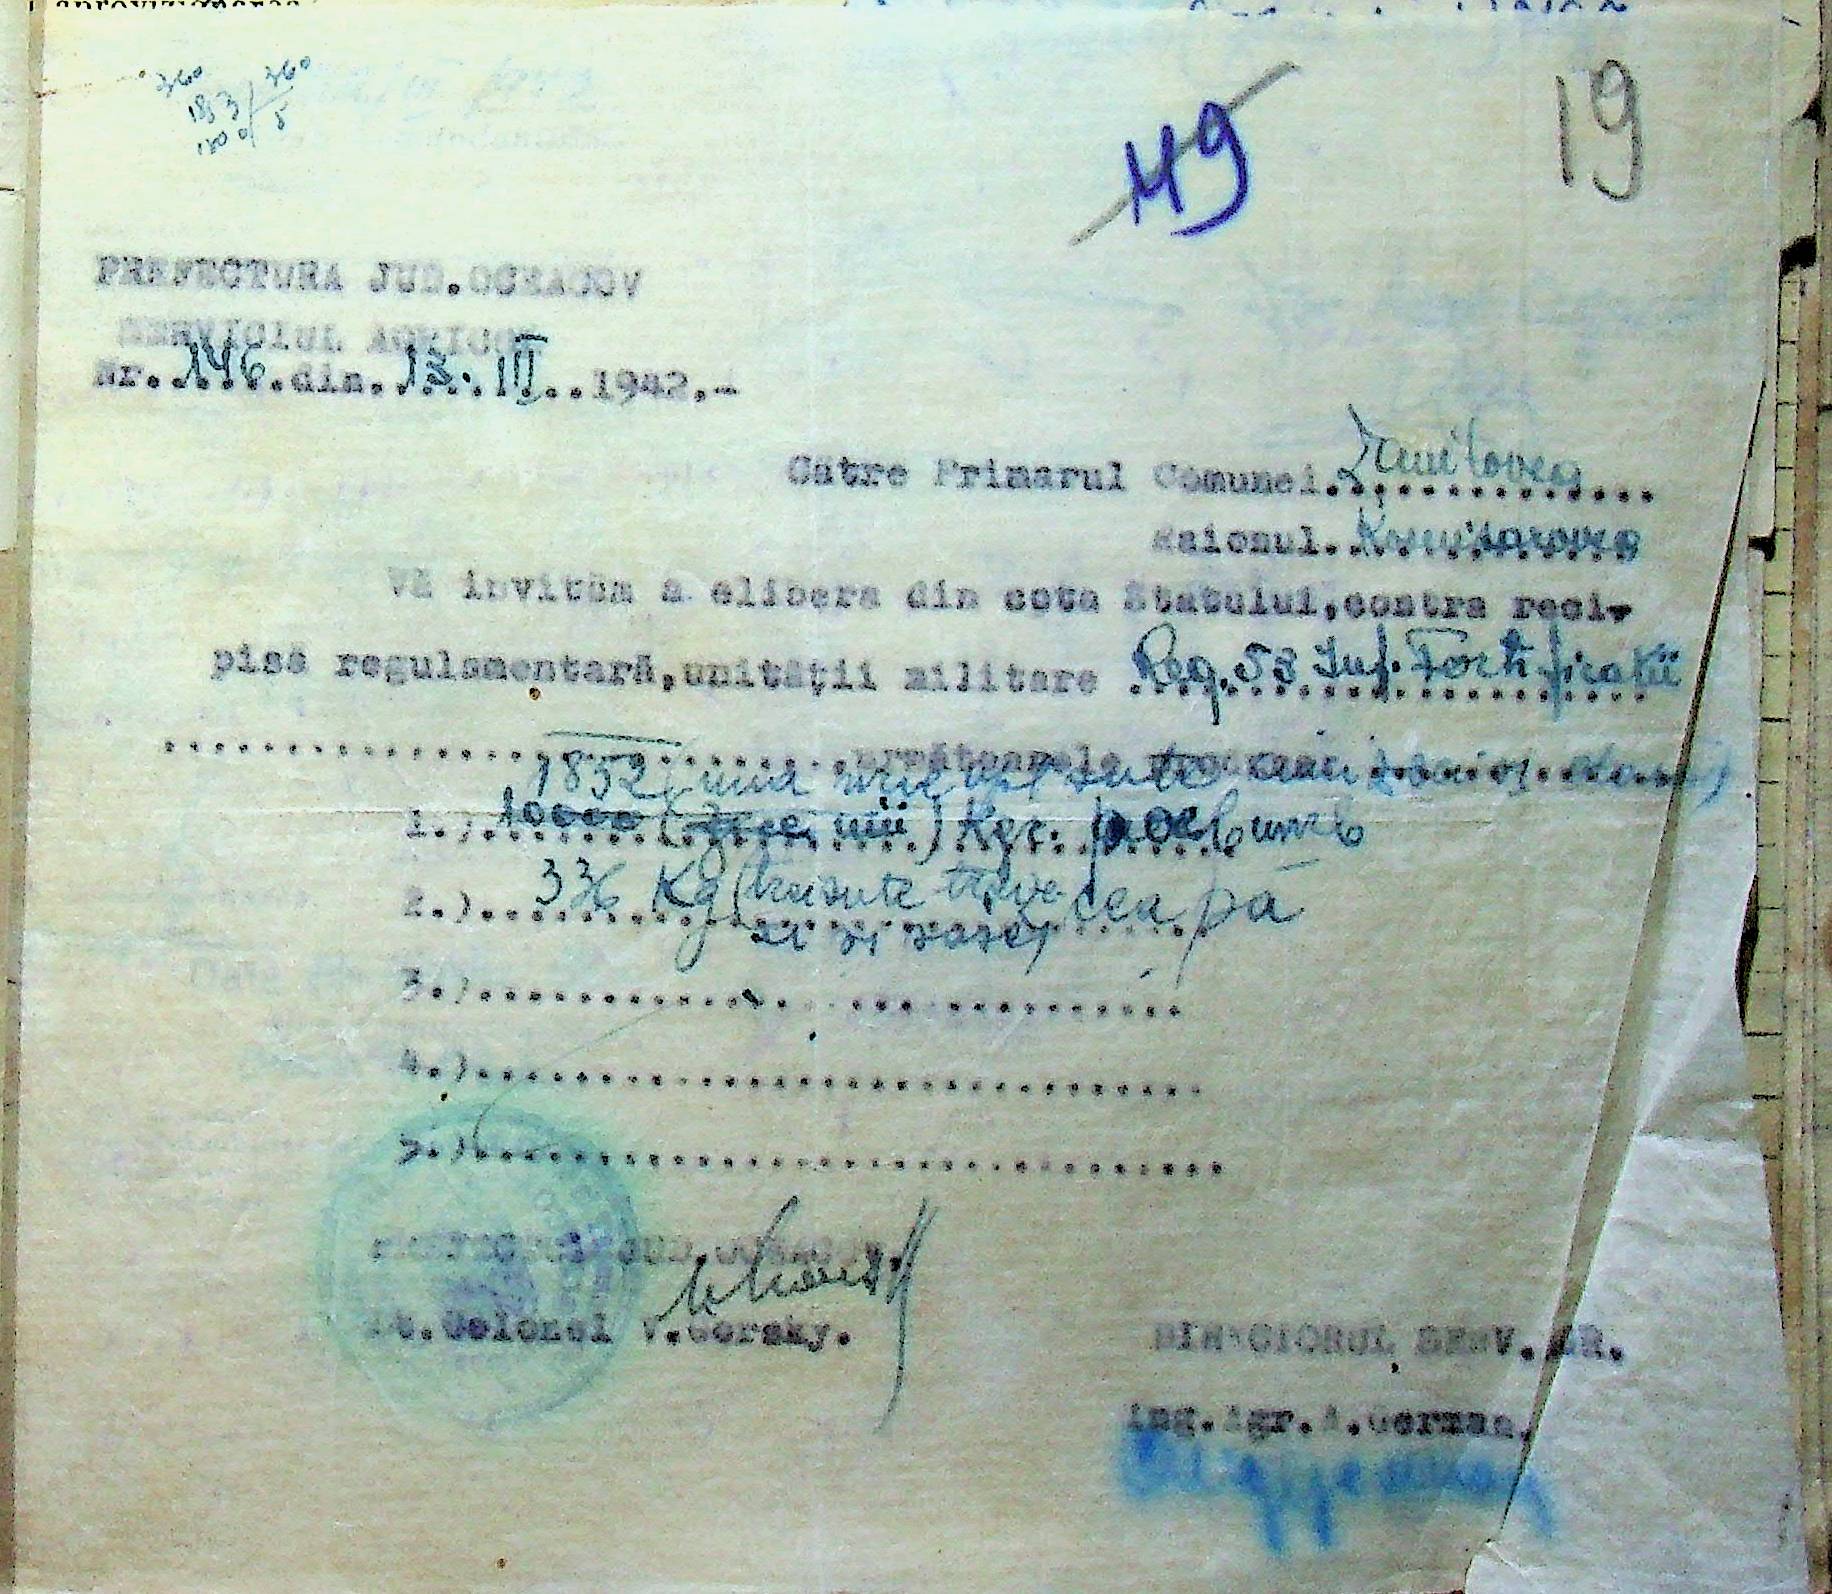 360 360
183
100 5
49 19
PREFECTURA JUD.OCEACOV
SERVICIUL AGRICOL
Nr. 146 din 13. III 1942.-
Către Primarul Comunei
Raionul
Vă invităm a elibera din cota Statului, contra reci-
pisă regulamentară, unității militare Reg. 53 Inf. Fortificatii
următoarele produse
1852 una mie opt sute
1.) 10000 (zece mii) Kgr. porumb
2.) 336 Kg (treisute trei- ceapă
zeci si sase)
3.)
4.)
5.)
PREFECTUL JUD.OCEACOV.
Lt.Colonel V.Gorsky.
DIRECTORUL SERV. GR.
Ing.Agr.A.German.